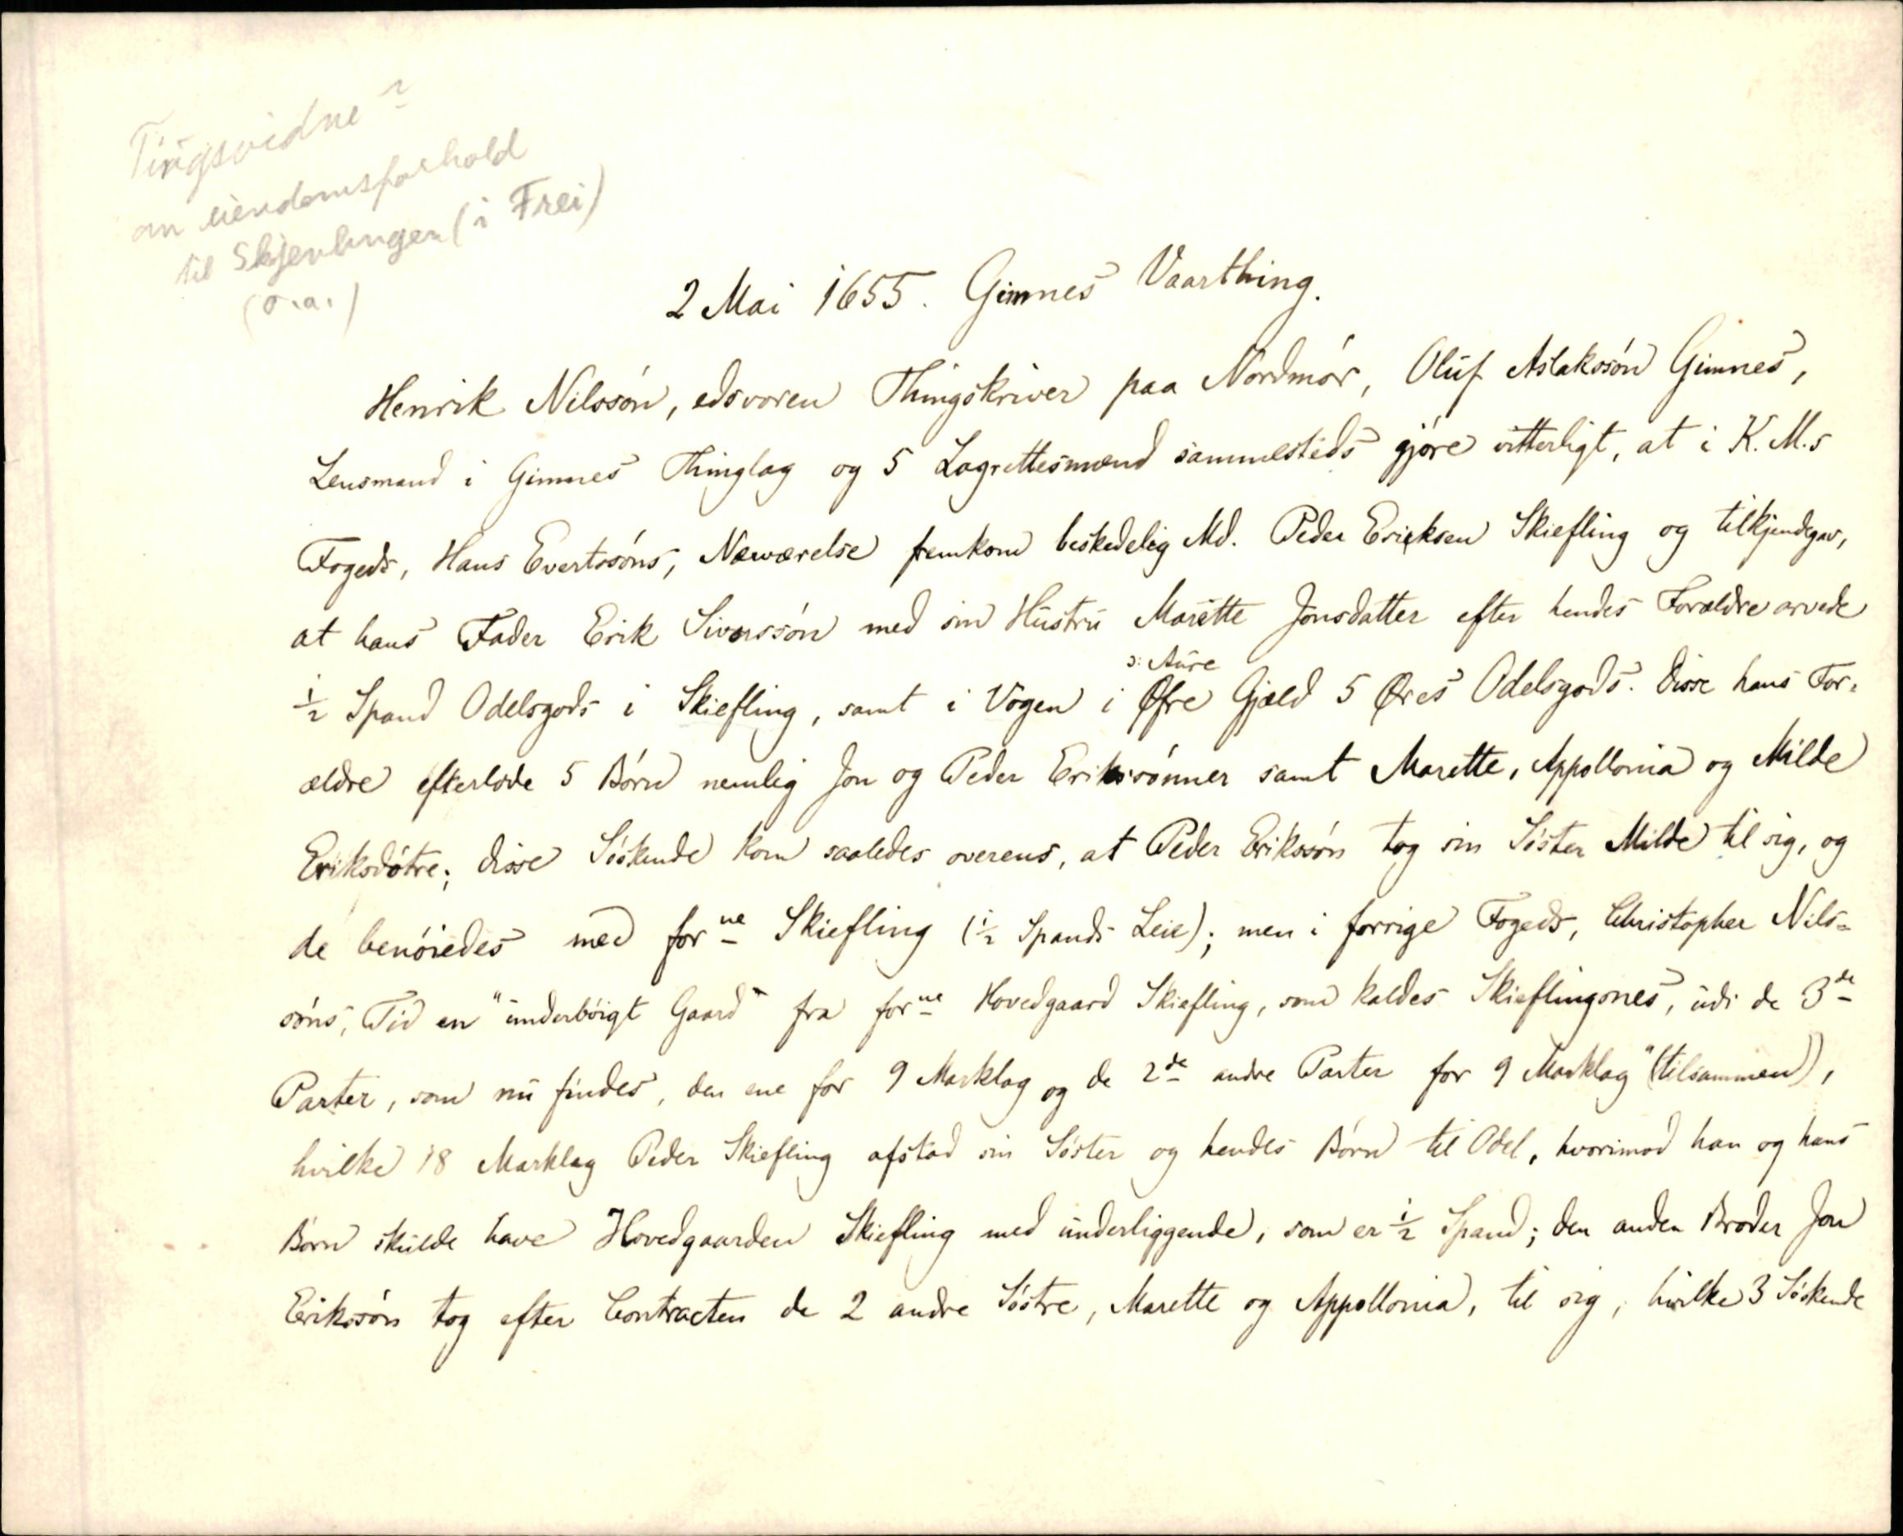 Tingsvidne?
om eiendomsforhold
til Skjevlingen (i Frei)
(o.a.)
2 Mai 1655. Gimnes Vaarthing.
Henrik Nilssön, edsvoren Thingskriver paa Nordmör, Oluf Aslakssön Gimnes,
Lensmand i Gimnes Thinglag og 5 Lagrettesmænd sammesteds gjöre vitterligt, at i K. M.s
Fogeds, Hans Evertssöns, Næværelse fremkom beskedelig Md. Peder Eriksen Skiefling og tilkjendgav,
at hans Fader Erik Siverssön med sin Hustru Marette Jonsdatter efter hendes Forældre arvede
½ Spand Odelsgods i Skiefling, samt i Vogen i Øfre Gjæld 5 Øres Odelsgods. Disse hans For=
ɔ: Aure
ældre efterlode 5 Börn nemlig Jon og Peder Erikssönner samt Marette, Appollonia og Milde
Eriksdötre; disse Söskende kom saaledes overens, at Peder Erikssön tog sin Söster Milde til sig, og
de benöiedes med forne Skiefling (½ Spands Leie); men i forrige Fogeds, Christopher Nils=
söns, Tid en "underböigt Gaard fra forne Hovedgaard Skiefling, som kaldes Skieflingsnes, udi de 3de
Parter, som nu findes, den ene for 9 Marklag og de 2de andre Parter for 9 Marklag" (tilsammen),
hvilke 18 Marklag Peder Skiefling afstod sin Söster og hendes Börn til Odel, hvorimod han og hans
Börn skulde have Hovedgaarden Skiefling med underliggende, som er ½ Spand; den anden Broder Jon
Erikssön tog efter Contracten de 2 andre Söstre, Marette og Appollonia, til sig, hvilke 3 Söskende